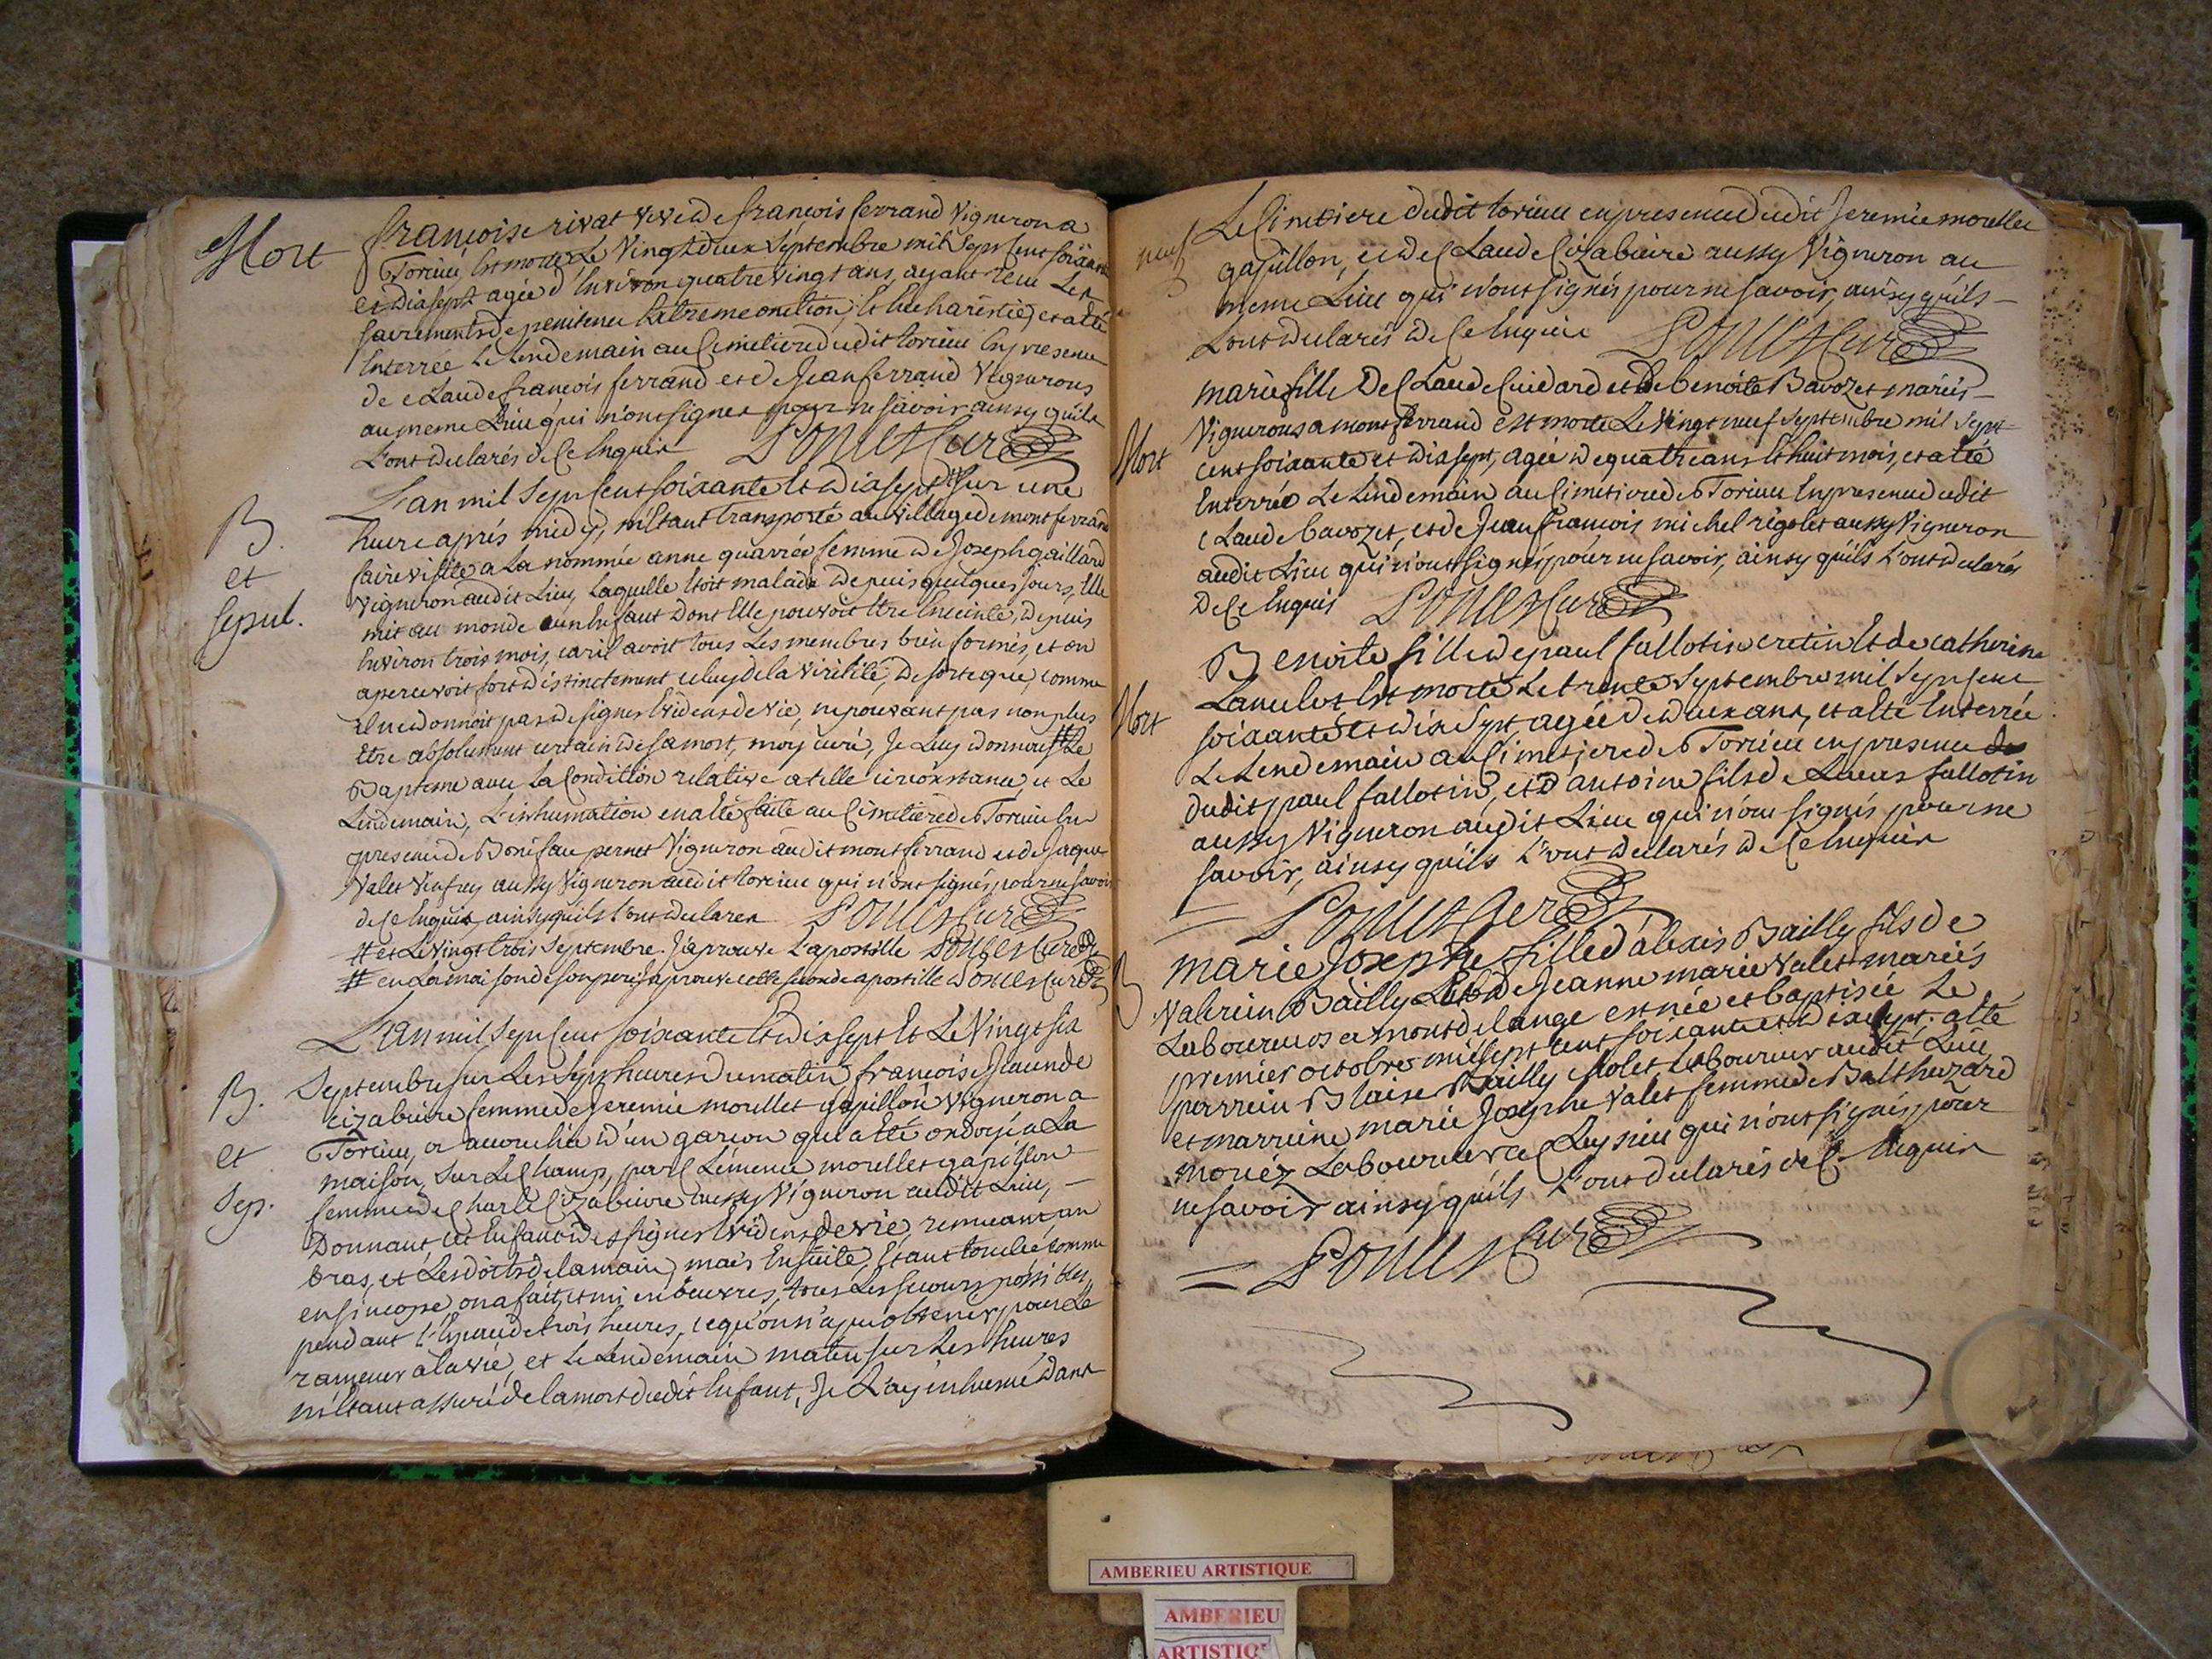 Mort
françoise rivat veve de françois ferrand Vigneron a
Torcieu est morte Le Vingt deux Septembre mil Sept Cent soixante
et dix sept agée d'Environ quatre vingt ans, ayant reçu Les
sacrements de penitence Extreme onction, et Eucharestie, et a été
Enterrée Le Lendemain au Cimetiere dudit torcieu En presence
de Claude françois ferrand et de Jean ferrand Vignerons
au meme Lieu qui n'ont signes pour ne savoir ainsy quils
L'ont declarés de Ce Enquis Poncet Curé
B.
et
sepul.
L'an mil Sept Cent soixante Et dix sept # sur une
heure aprés midy, m'étant transporté au village de montferrand
faire visite a La nommée anne quarrée femme de Joseph gaillard
Vigneron audit Lieu, Laquelle étoit malade depuis quelques Jours, Elle
mit au monde un Enfant dont Elle pouvoit être Enceinte, depuis
Environ trois mois, car il avoit tous Les membres bien formés, et on
apercevoit fort distinctement celuy de la virilité, de sorte que, comme
il ne donnoit pas de signes Evidens de vie, ne pouvant pas non plus
être absolument certain de sa mort, moy curé, Je Luy donnay # Le
Bapteme avec La Condition relative a telle circonstance, et Le
Lendemain, L'inhumation en a été faite au Cimetiere de Torcieu En
presence de Boniface pernet Vigneron audit montferrand et de Jaque
Valet aussy Vigneron audit torcieu qui n'ont signés pour ne savoir
de Ce Enquis ainsy quils L'ont declares Poncet Curé
# et Le vingt trois Septembre. J'aprouve L'apostille Poncet Curé
# en La maison de son pere J'aprouve cette seconde apostille Poncet Curé
B.
et
Sep.
L'an mil Sept Cent soixante Et dix sept Et Le Vingt six
Septembre sur Les Sept heures du matin françoise
cizabuire femme de Jeremie morellet gapillon Vigneron a
Torcieu, a accouchée d'un garçon qui a été ondoyé a La
maison, sur Le Champ, par Clémence morellet gapillon
femme de Charle Cizabuire aussy Vigneron audit Lieu, –
Donnant cet Enfant des signes Evidens de vie, remuant un
bras, et Les doits de la main, mais Ensuite, Etant tombé comme
en sincope, on a fait, et mi en oeuvres, tous Les secours possibles,
pendant L'Espace de trois heures, ce qu'on n'a pu obtenir, pour Le
ramener a la vie, et Le Lendemain matin sur Les heures
m'étant assuré de la mort dudit Enfant, Je L'ay inhumé dans
neuf
Le Cimetiere dudit torcieu en presence dudit Jeremie morellet
gapillon, et de Claude Cizabuire aussy Vigneron au
meme Lieu qui n'ont signés pour ne savoir, ainsy quils –
L'ont declarés de Ce Enquis Poncet Curé
Mort
marie fille de Claude Cuidard et de benoite Bavozet mariés –
Vignerons a montferrand est morte Le Vingt neuf Septembre mil Sept
cent soixante et dix sept, agée de quatre ans Et huit mois, et a été
Enterrée Le Lendemain au Cimetiere de Torcieu En presence dudit
Claude bavozet, et de Jean françois michel rigolet aussy Vigneron
audit Lieu qui n'ont signés pour ne savoir, ainsy quils L'ont declarés
de Ce Enquis Poncet Curé
Mort
Benoite fille de paul fallotin cretin Et de catherine
Lancelot Est morte Le trente Septembre mil Sept Cent
soixante et dix Sept, agée de deux ans, et a été Enterrée
Le Lendemain au Cimetiere de Torcieu en presence de
dudit paul fallotin, et d'antoine fils de Lucas fallotin
aussy Vigneron audit Lieu qui n'ont signés pour ne
savoir, ainsy quils L'ont declarés de Ce Enquis
Poncet Curé
B
marie Josephe fille d'alexis Bailly fils de
Valerin Bailly Et de Jeanne marie Valet mariés
Laboureurs a mont de lange est née et baptisée Le
premier octobre mil Sept Cent soixante et dix Sept. a été
perrein Blaise Bailly Molet Laboureur audit Lieu,
et marreine marie Josephe Valet femme de Balthezard
moriéz Laboureur a Cleyzieu qui n'ont signés, pour
ne savoir ainsy quils L'ont declarés de Ce Enquis
Poncet Curé
AMBERIEU ARTISTIQUE
AMBERIEU
ARTISTIQ